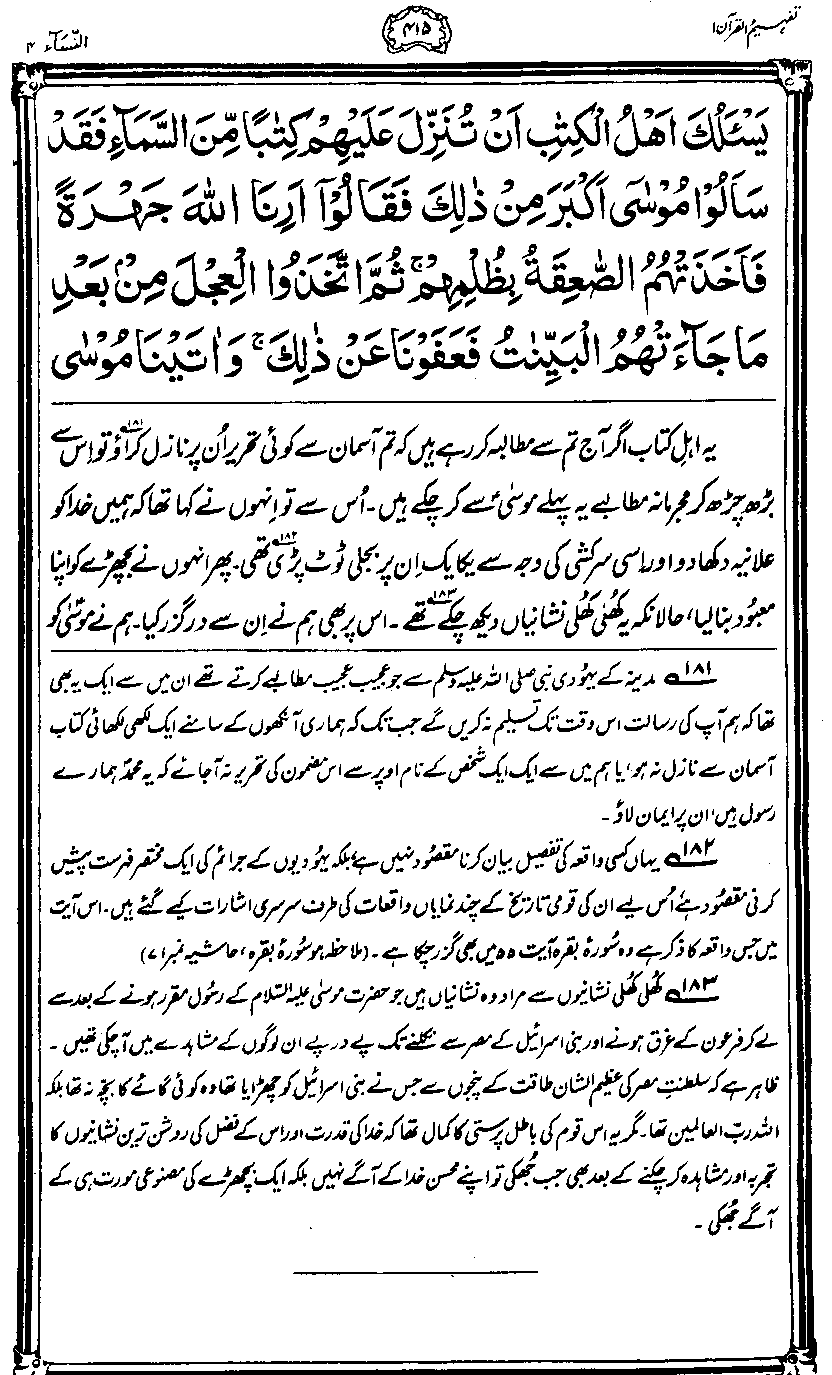 تفہیم القرآن ۱
۴۱۵
النّسآء ۴
يَسْـَٔلُكَ اَهْلُ الْكِتٰبِ اَنْ تُنَزِّلَ عَلَيْهِمْ كِتٰبًا مِّنَ السَّمَآءِ فَقَدْ
سَاَلُوْا مُوْسٰٓى اَكْبَرَ مِنْ ذٰلِكَ فَقَالُوْٓا اَرِنَا اللّٰهَ جَهْرَةً
فَاَخَذَتْهُمُ الصّٰعِقَةُ بِظُلْمِهِمْ ۚ ثُمَّ اتَّخَذُوا الْعِجْلَ مِنْۢ بَعْدِ
مَا جَآءَتْهُمُ الْبَيِّنٰتُ فَعَفَوْنَا عَنْ ذٰلِكَ ۚ وَاٰتَيْنَا مُوْسٰى
یہ اہلِ کتاب اگر آج تم سے مطالبہ کر رہے ہیں کہ تم آسمان سے کوئی تحریر اُن پر نازل کراؤ ۱۸۱ تو اِس سے
بڑھ چڑھ کر مجرمانہ مطالبے یہ پہلے موسیٰؑ سے کر چکے ہیں۔ اُس سے تو اِنہوں نے کہا تھا کہ ہمیں خدا کو
علانیہ دکھا دو اور اسی سرکشی کی وجہ سے یکایک اِن پر بجلی ٹوٹ پڑی ۱۸۲ تھی۔ پھر انہوں نے بچھڑے کو اپنا
معبود بنا لیا، حالانکہ یہ کھُلی کھُلی نشانیاں دیکھ چکے ۱۸۳ تھے۔ اس پر بھی ہم نے اِن سے درگزر کیا۔ ہم نے موسیٰؑ کو
۱۸۱ مدینہ کے یہودی نبی صلی اللہ علیہ وسلم سے جو عجیب عجیب مطالبے کرتے تھے ان میں سے ایک یہ بھی
تھا کہ ہم آپ کی رسالت اس وقت تک تسلیم نہ کریں گے جب تک کہ ہماری آنکھوں کے سامنے ایک لکھی لکھائی کتاب
آسمان سے نازل نہ ہو، یا ہم میں سے ایک ایک شخص کے نام اوپر سے اس مضمون کی تحریر نہ آجائے کہ یہ محمدؐ ہمارے
رسول ہیں، ان پر ایمان لاؤ۔
۱۸۲ یہاں کسی واقعہ کی تفصیل بیان کرنا مقصود نہیں ہے، بلکہ یہودیوں کے جرائم کی ایک مختصر فہرست پیش
کرنی مقصود ہے، اُس لیے ان کی قومی تاریخ کے چند نمایاں واقعات کی طرف سرسری اشارات کیے گئے ہیں۔ اس آیت
میں جس واقعہ کا ذکر ہے وہ سُورۂ بقرہ آیت ۵۵ میں بھی گزر چکا ہے۔ (ملاحظہ ہو سُورۂ بقرہ، حاشیہ نمبر ۷۱)
۱۸۳ کھُلی کھُلی نشانیوں سے مراد وہ نشانیاں ہیں جو حضرت موسیٰ علیہ السّلام کے رسُول مقرر ہونے کے بعد سے
لے کر فرعون کے غرق ہونے اور بنی اسرائیل کے مصر سے نکلنے تک پے در پے ان لوگوں کے مشاہدے میں آچکی تھیں۔
ظاہر ہے کہ سلطنتِ مصر کی عظیم الشان طاقت کے پنجوں سے جس نے بنی اسرائیل کو چھڑایا تھا وہ کوئی گائے کا بچہ نہ تھا بلکہ
اللہ ربّ العالمین تھا۔ مگر یہ اس قوم کی باطل پرستی کا کمال تھا کہ خدا کی قدرت اور اس کے فضل کی روشن ترین نشانیوں کا
تجربہ اور مشاہدہ کر چکنے کے بعد بھی جب جُھکی تو اپنے محسن خدا کے آگے نہیں بلکہ ایک بچھڑے کی مصنوعی مورت ہی کے
آگے جُھکی۔